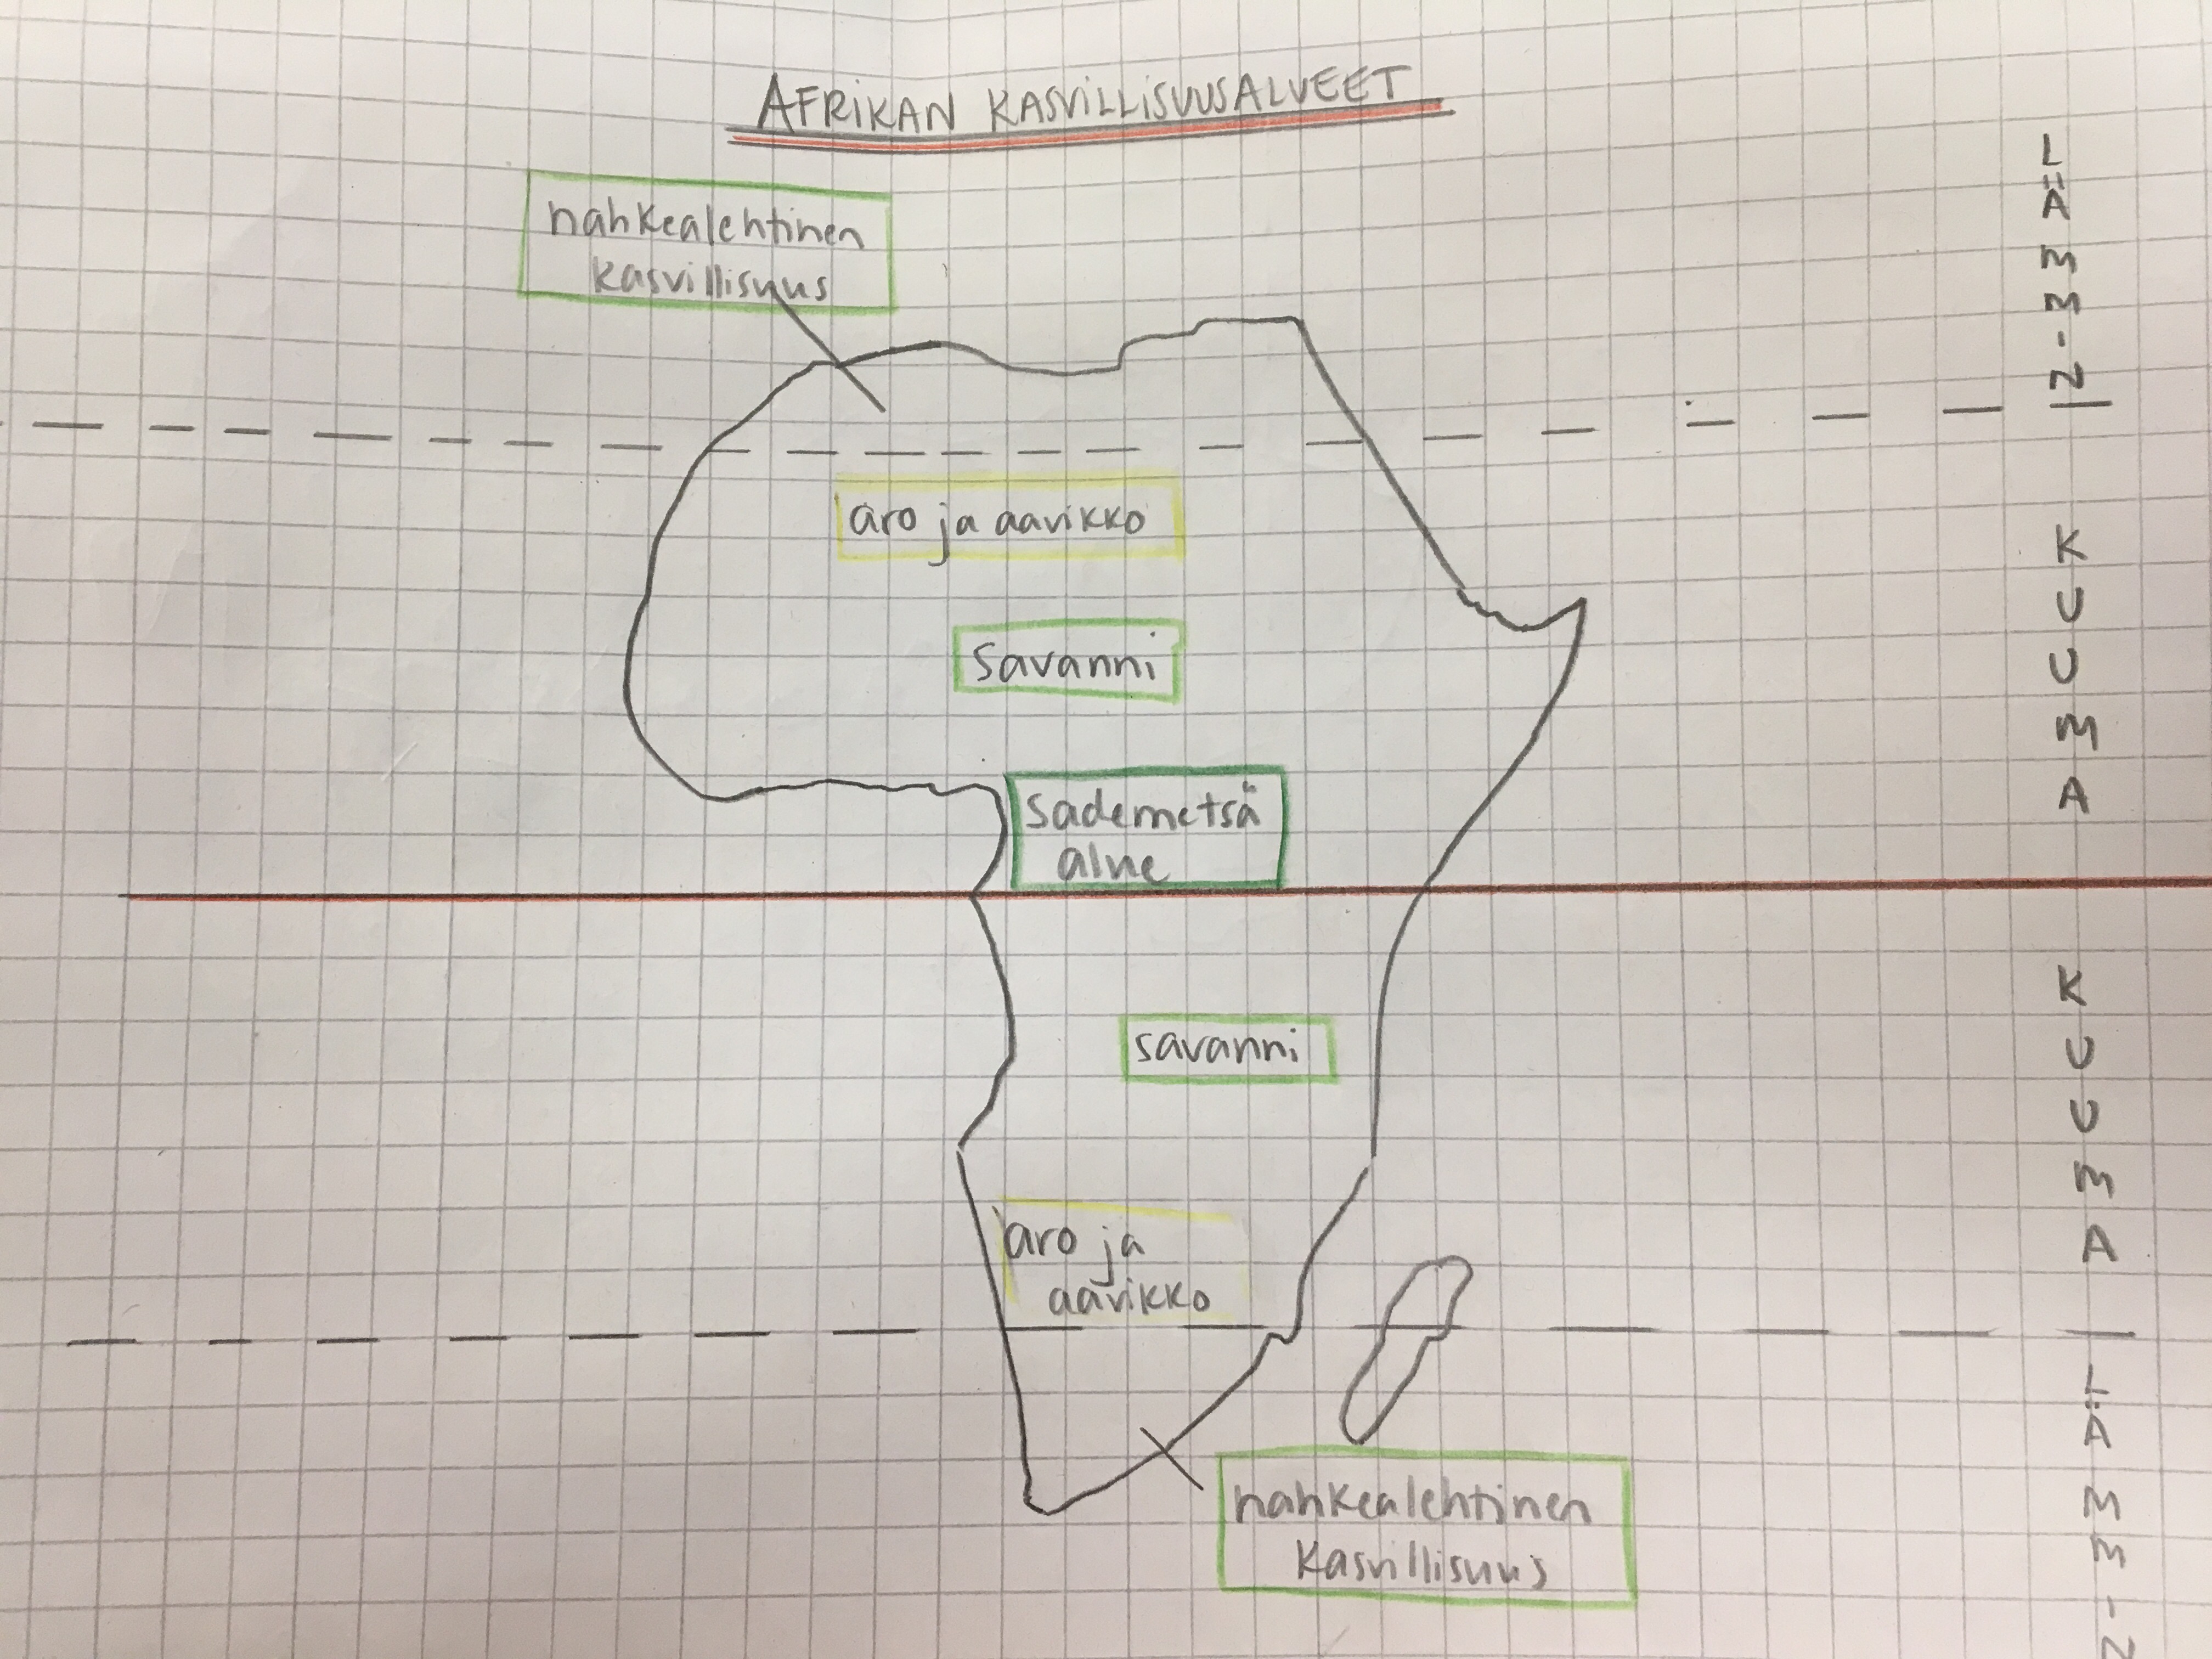 AFRIKAN KASVILLISUUSALUEET
nahkealehtinen
kasvillisuus
aro ja aavikko
savanni
sademetsä
alue
savanni
aro ja
aavikko
nahkealehtinen
kasvillisuus
LÄMMIN
KUUMA
KUUMA
LÄMMIN